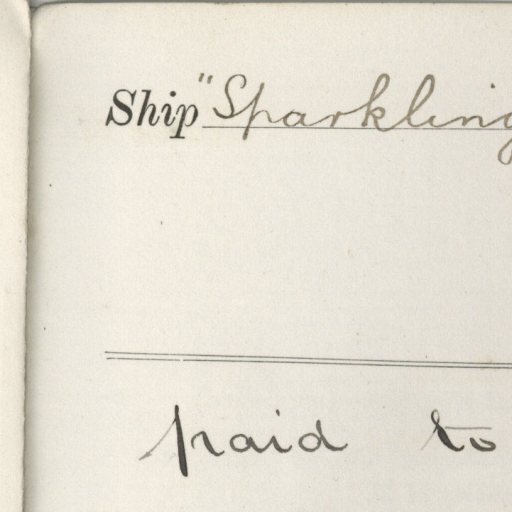 Ship "Sparkling
paid to